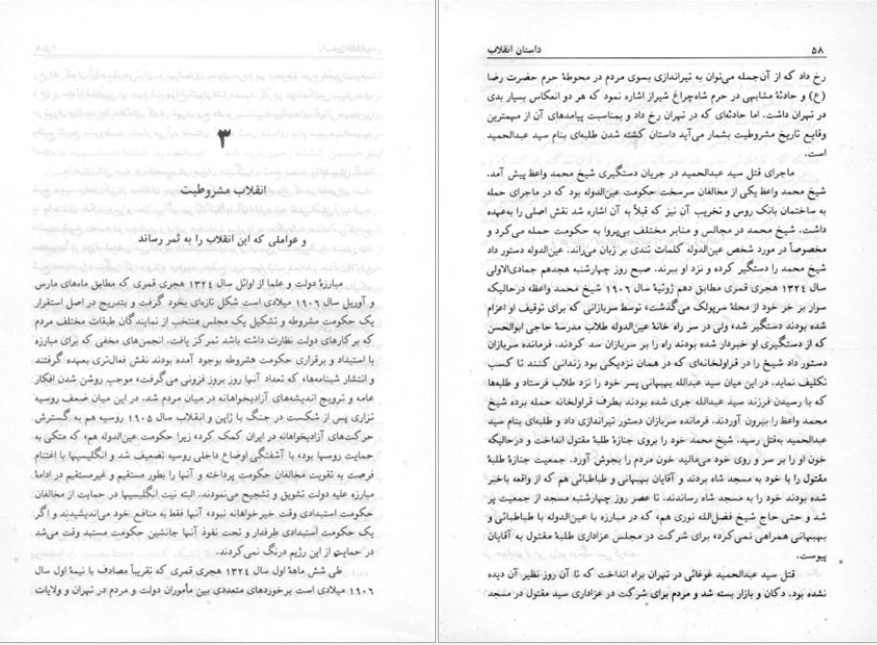 ۳
انقلاب مشروطیت
و عواملی که این انقلاب را به ثمر رساند
مبارزهٔ دولت و علما از اوائل سال ۱۳۲۴ هجری قمری که مطابق ماه‌های مارس
و آوریل سال ۱۹۰۶ میلادی است شکل تازه‌ای بخود گرفت و بتدریج در اصل استقرار
یک حکومت مشروطه و تشکیل یک مجلس منتخب از نمایندگان طبقات مختلف مردم
که بر کارهای دولت نظارت داشته باشد تمرکز یافت. انجمن‌های مخفی که برای مبارزه
با استبداد و برقراری حکومت مشروطه بوجود آمده بودند نقش فعال‌تری بعهده گرفتند
و انتشار شبنامه‌ها، که تعداد آنها روز بروز فزونی می‌گرفت، موجب روشن شدن افکار
عامه و ترویج اندیشه‌های آزادیخواهانه در میان مردم شد. در این میان ضعف روسیه
تزاری پس از شکست در جنگ با ژاپن و انقلاب سال ۱۹۰۵ روسیه هم به گسترش
حرکت‌های آزادیخواهانه در ایران کمک کرد، زیرا حکومت عین‌الدوله هم، که متکی به
حمایت روسها بود، با آشفتگی اوضاع داخلی روسیه تضعیف شد و انگلیسیها با اغتنام
فرصت به تقویت مخالفان حکومت پرداخته و آنها را بطور مستقیم و غیرمستقیم در ادامهٔ
مبارزه علیه دولت تشویق و تشجیع می‌نمودند. البته نیت انگلیسیها در حمایت از مخالفان
حکومت استبدادی وقت خیرخواهانه نبود، آنها فقط به منافع خود می‌اندیشیدند و اگر
یک حکومت استبدادی طرفدار و تحت نفوذ آنها جانشین حکومت مستبد وقت می‌شد
در حمایت از این رژیم درنگ نمی‌کردند.
طی شش ماههٔ اول سال ۱۳۲۴ هجری قمری که تقریباً مصادف با نیمهٔ اول سال
۱۹۰۶ میلادی است برخوردهای متعددی بین مأموران دولت و مردم در تهران و ولایات
۵۸ داستان انقلاب
رخ داد که از آن‌جمله می‌توان به تیراندازی بسوی مردم در محوطهٔ حرم حضرت رضا
(ع) و حادثهٔ مشابهی در حرم شاه‌چراغ شیراز اشاره نمود که هر دو انعکاس بسیار بدی
در تهران داشت. اما حادثه‌ای که در تهران رخ داد و بمناسبت پیامدهای آن از مهمترین
وقایع تاریخ مشروطیت بشمار می‌آید داستان کشته شدن طلبه‌ای بنام سید عبدالحمید
است.
ماجرای قتل سید عبدالحمید در جریان دستگیری شیخ محمد واعظ پیش آمد.
شیخ محمد واعظ یکی از مخالفان سرسخت حکومت عین‌الدوله بود که در ماجرای حمله
به ساختمان بانک روس و تخریب آن نیز که قبلاً به آن اشاره شد نقش اصلی را به‌عهده
داشت. شیخ محمد در مجالس و منابر مختلف بی‌پروا به حکومت حمله می‌کرد و
مخصوصاً در مورد شخص عین‌الدوله کلمات تندی بر زبان می‌راند. عین‌الدوله دستور داد
شیخ محمد را دستگیر کرده و نزد او ببرند. صبح روز چهارشنبه هجدهم جمادی‌الاولی
سال ۱۳۲۴ هجری قمری مطابق دهم ژوئیهٔ سال ۱۹۰۶ شیخ محمد واعظ، درحالیکه
سوار بر خر خود از محلهٔ سرپولک می‌گذشت، توسط سربازانی که برای توقیف او اعزام
شده بودند دستگیر شد، ولی در سر راه خانهٔ عین‌الدوله طلاب مدرسهٔ حاجی ابوالحسن
که از دستگیری او خبردار شده بودند راه را بر سربازان سد کردند. فرمانده سربازان
دستور داد شیخ را در قراولخانه‌ای که در همان نزدیکی بود زندانی کنند تا کسب
تکلیف نماید. در این میان سید عبدالله بهبهانی پسر خود را نزد طلاب فرستاد و طلبه‌ها
که با رسیدن فرزند سید عبدالله جری شده بودند بطرف قراولخانه حمله برده شیخ
محمد واعظ را بیرون آوردند. فرمانده سربازان دستور تیراندازی داد و طلبه‌ای بنام سید
عبدالحمید به‌قتل رسید. شیخ محمد خود را بروی جنازهٔ طلبهٔ مقتول انداخت و درحالیکه
خون او را بر سر و روی خود می‌مالید خون مردم را بجوش آورد. جمعیت جنازهٔ طلبهٔ
مقتول را با خود به مسجد شاه بردند و آقایان بهبهانی و طباطبائی هم که از واقعه باخبر
شده بودند خود را به مسجد شاه رساندند. تا عصر روز چهارشنبه مسجد از جمعیت پر
شد و حتی حاج شیخ فضل‌الله نوری هم، که در مبارزه با عین‌الدوله با طباطبائی و
بهبهانی همراهی نمی‌کرد، برای شرکت در مجلس عزاداری طلبهٔ مقتول به آقایان
پیوست.
قتل سید عبدالحمید غوغائی در تهران براه انداخت که تا آن روز نظیر آن دیده
نشده بود. دکان و بازار بسته شد و مردم برای شرکت در عزاداری سید مقتول در مسجد